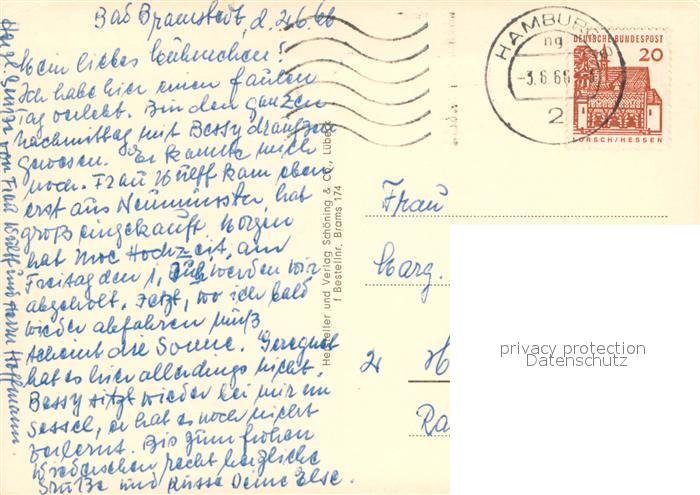 Bad Bramstedt, d. 2.6.66
Mein liebes Hühnchen!
Ich habe hier einen faulen
Tag verlebt. Bin den ganzen
Nachmittag mit Bessy draußen
gewesen. Er kannte mich
noch. Frau Wulff kam eben
erst aus Neumünster, hat
groß eingekauft. Morgen
hat Hochzeit, am
Freitag den 1. Juli werden wir
abgeholt. Jetzt, wo ich bald
wieder abfahren muß
scheint die Sonne. Geregnet
hat es hier allerdings nicht.
Bessy sitzt wieder bei mir im
Sessel, er hat es noch nicht
verlernt. Bis zum frohen
Wiedersehen recht herzliche
Grüße und Küsse Deine Else.
Herzl. Grüße von Frau Wulff und Herrn Hoffmann.
Hersteller und Verlag Schöning & Co., Lübeck
f Bestellnr. Brams 174
HAMBURG
-3.6.66
2
DEUTSCHE BUNDESPOST
20
LORSCH/HESSEN
Frau
Marg.
2 H
Ra
privacy protection
Datenschutz